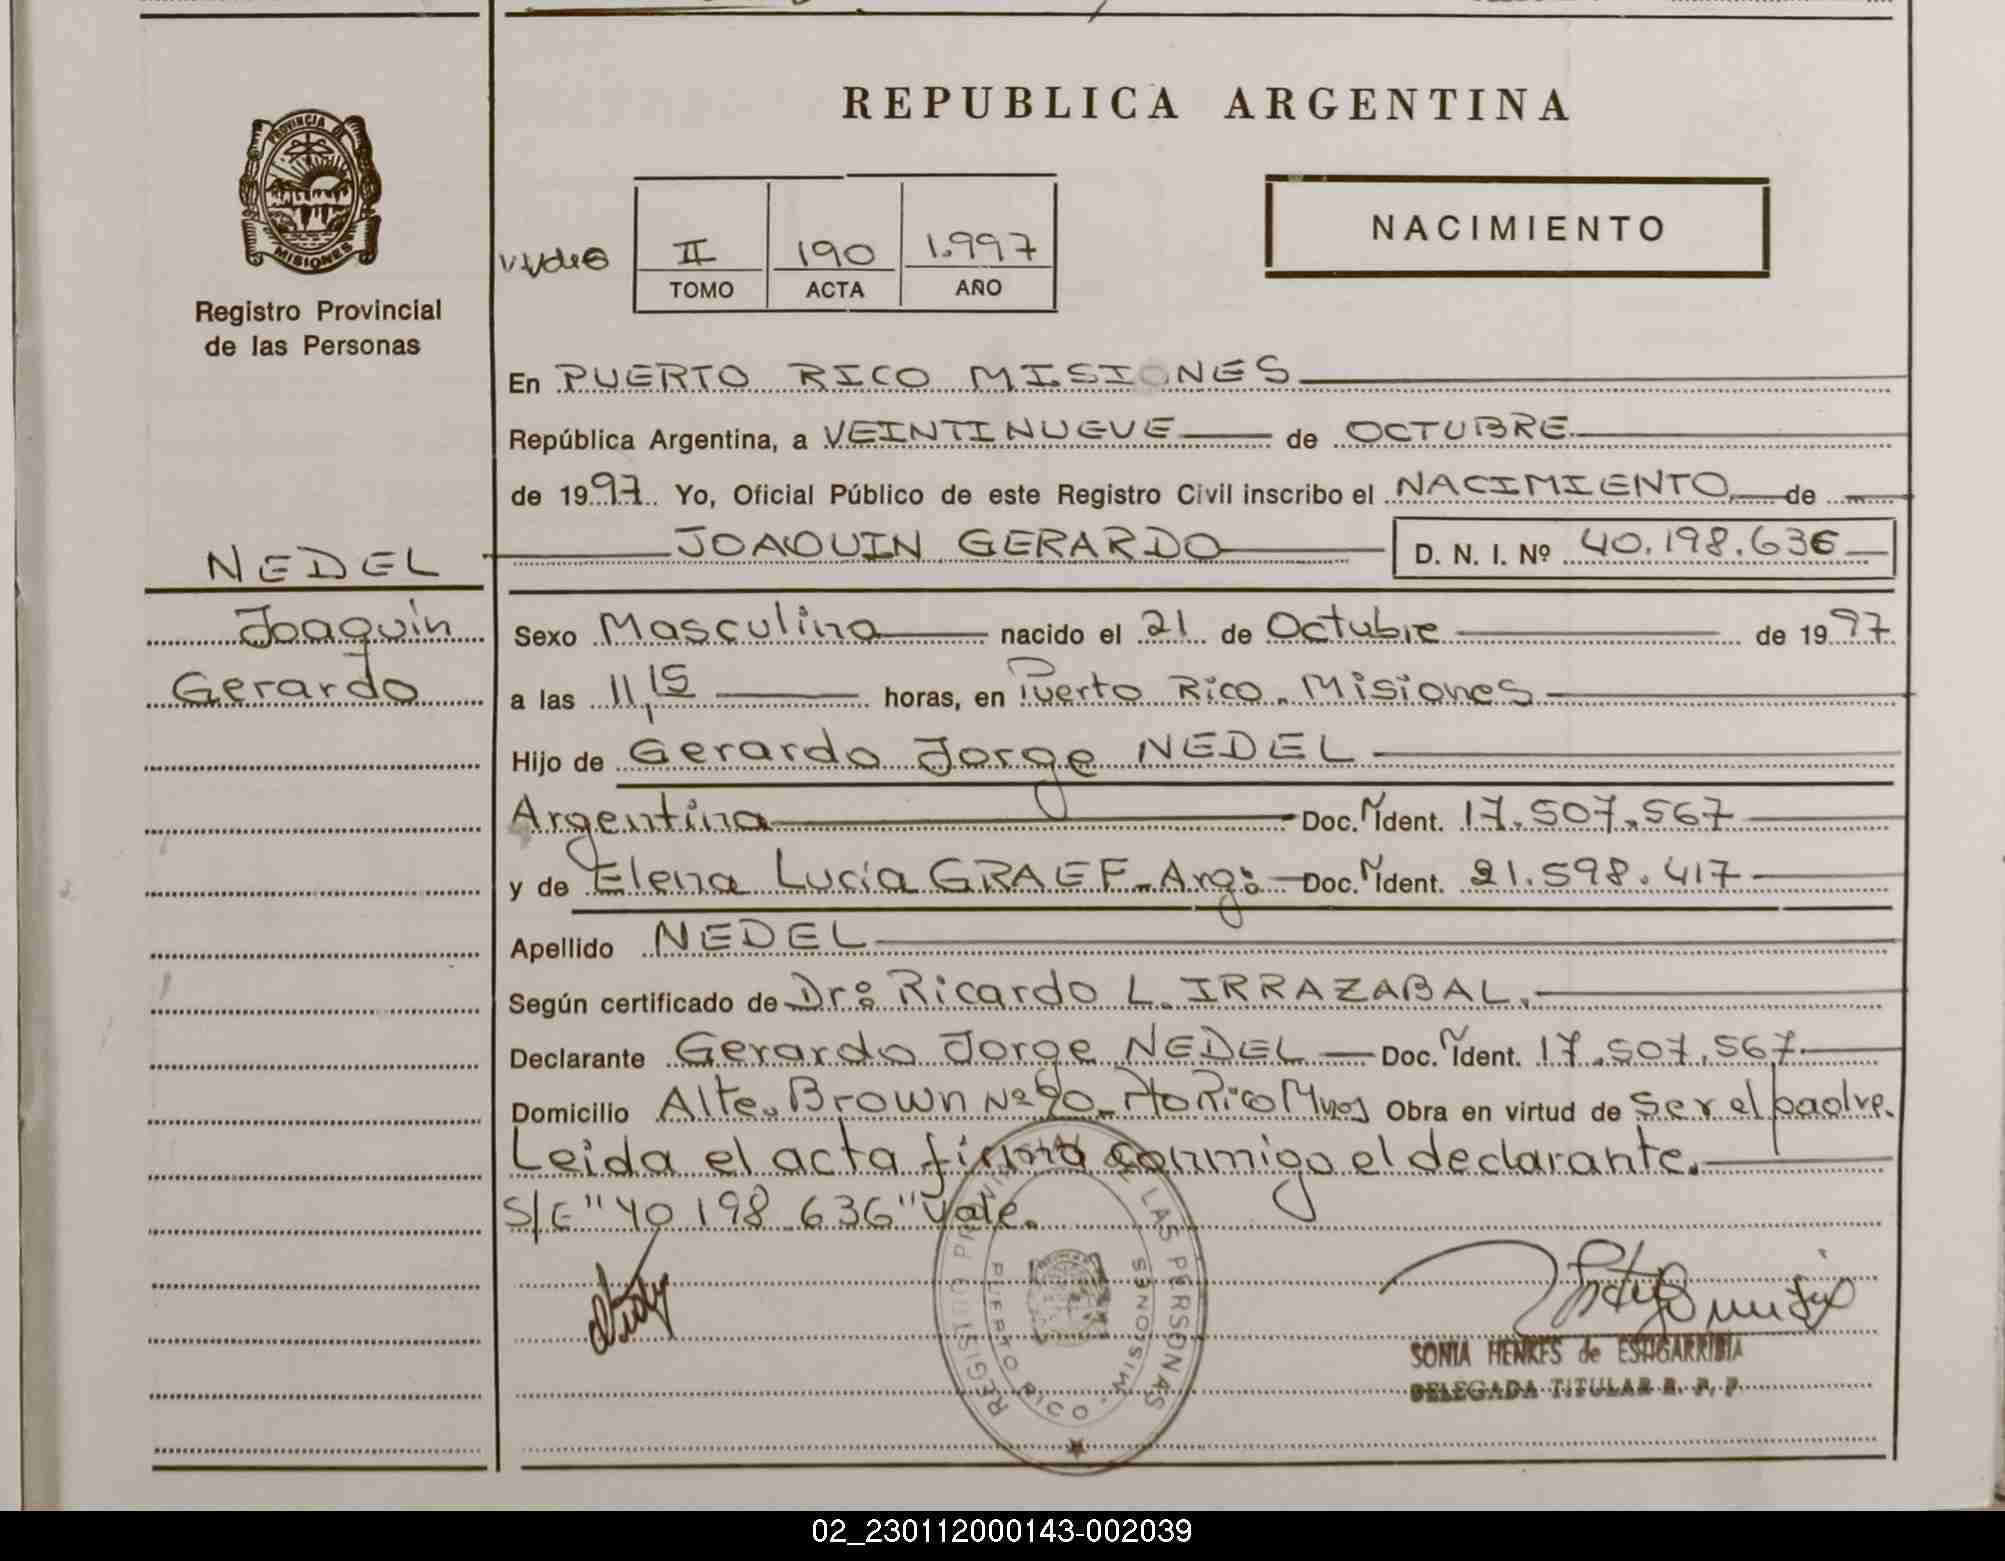 REPUBLICA ARGENTINA
PROVINCIA DE
MISIONES
Registro Provincial
de las Personas
II 190 1.997
TOMO ACTA AÑO
NACIMIENTO
En PUERTO RICO MISIONES
República Argentina, a VEINTINUEVE de OCTUBRE
de 1997. Yo, Oficial Público de este Registro Civil inscribo el NACIMIENTO de
JOAQUIN GERARDO D. N. I. Nº 40.198.636
NEDEL
Joaquín
Gerardo
Sexo Masculino nacido el 21 de Octubre de 1997
a las 11,15 horas, en Puerto Rico. Misiones
Hijo de Gerardo Jorge NEDEL
Argentina Doc. Ident. 17.507.567
y de Elena Lucía GRAEF. Arg: Doc. Ident. 21.598.417
Apellido NEDEL
Según certificado de Dr: Ricardo L. IRRAZABAL.
Declarante Gerardo Jorge NEDEL Doc. Ident. 17.507.567
Domicilio Alte. Brown Nº 90. Pto Rico Mnes Obra en virtud de ser el padre.
Leida el acta firma conmigo el declarante.
S/E "40 198 636" Vale.
REGISTRO PROVINCIAL DE LAS PERSONAS
PUERTO RICO - MISIONES
SONIA HENKES de ESTIGARRIBIA
DELEGADA TITULAR R. P. P.
02_230112000143-002039